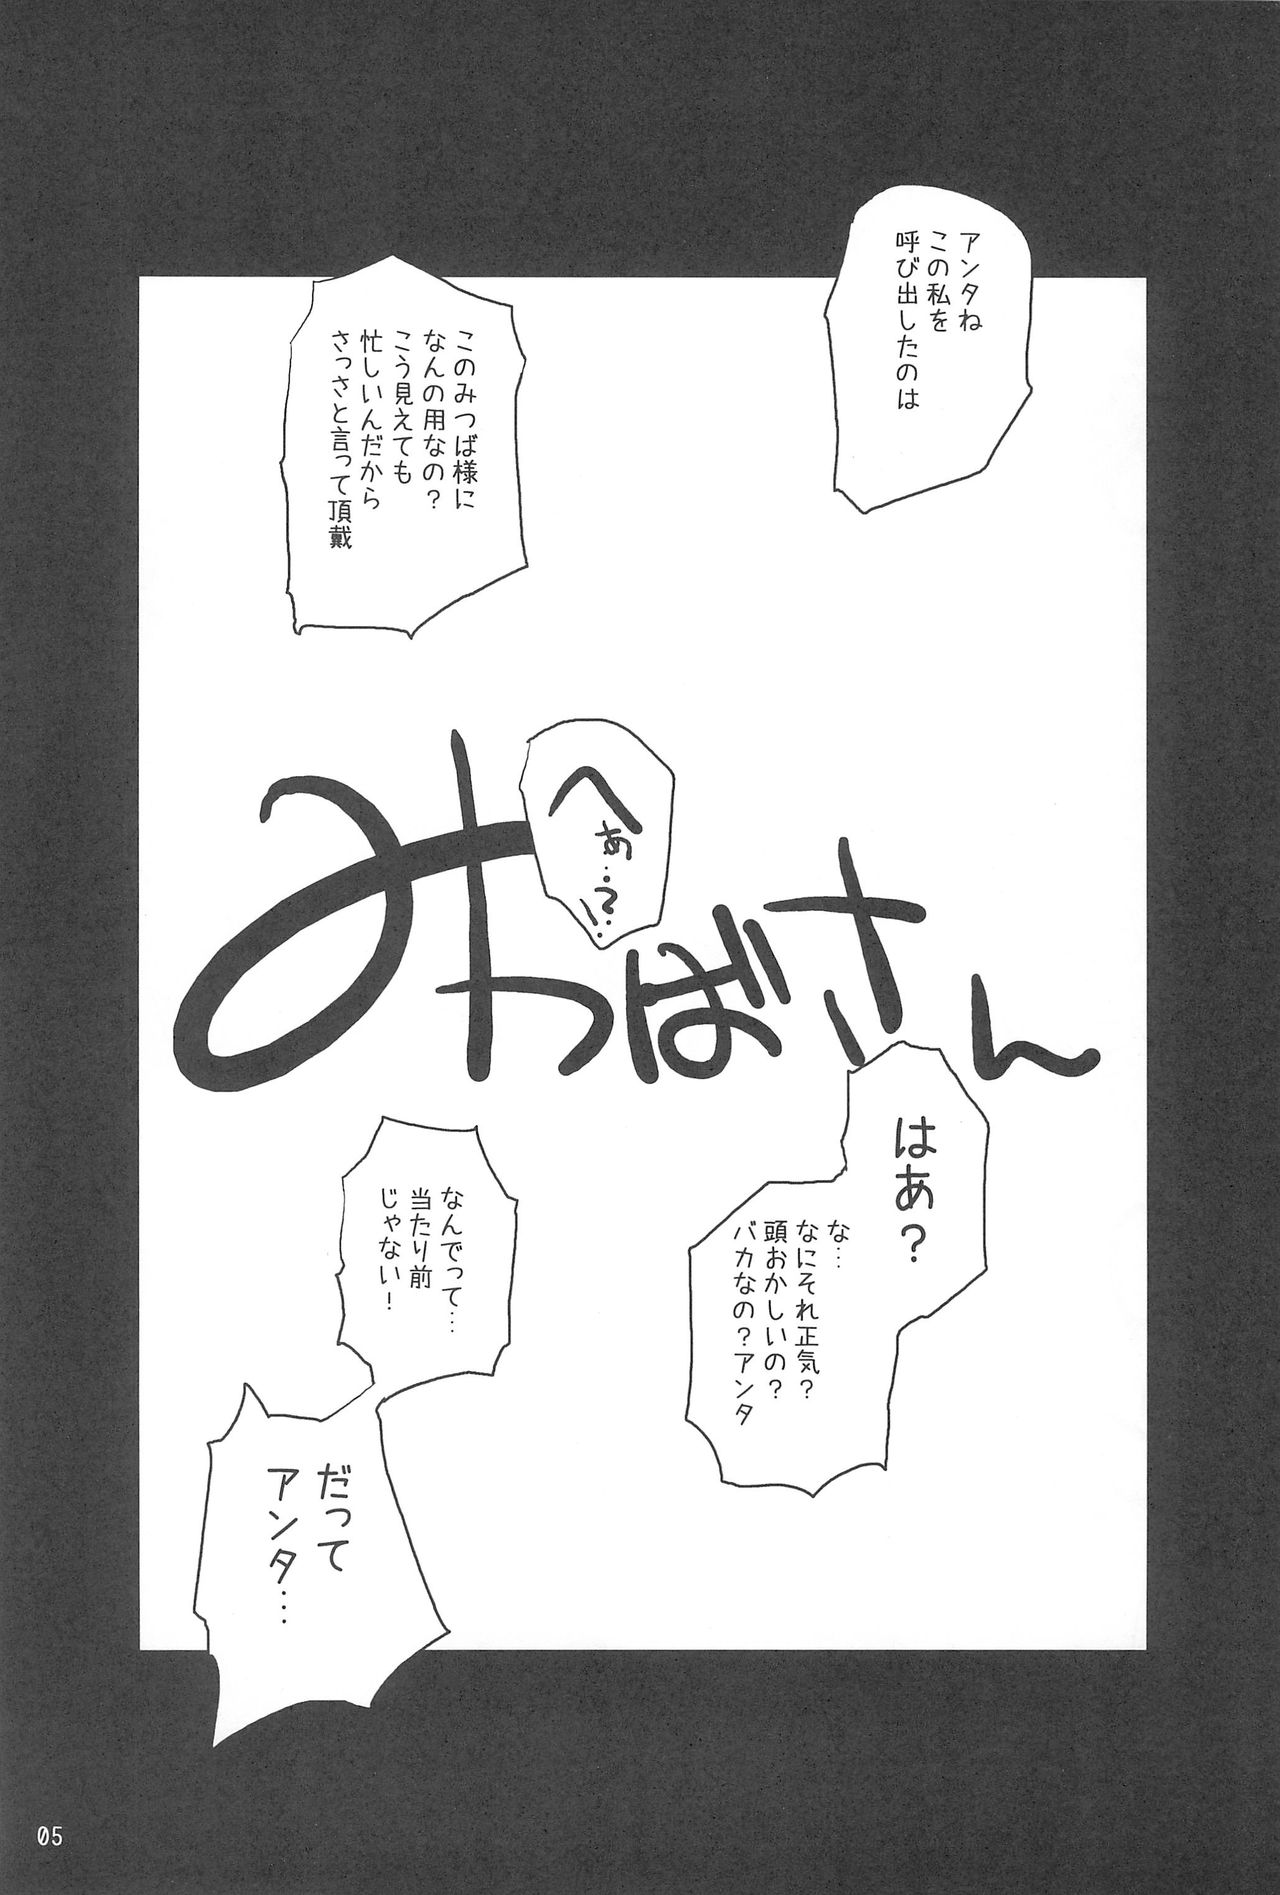 アンタね
この私を
呼び出したのは
このみつば様に
なんの用なの？
こう見えても
忙しいんだから
さっさと言って頂戴
へぁ…!?
みつばさん
はあ？
な…
なにそれ正気？
頭おかしいの？
バカなの？アンタ
なんでって…
当たり前
じゃない！
だって
アンタ…
05